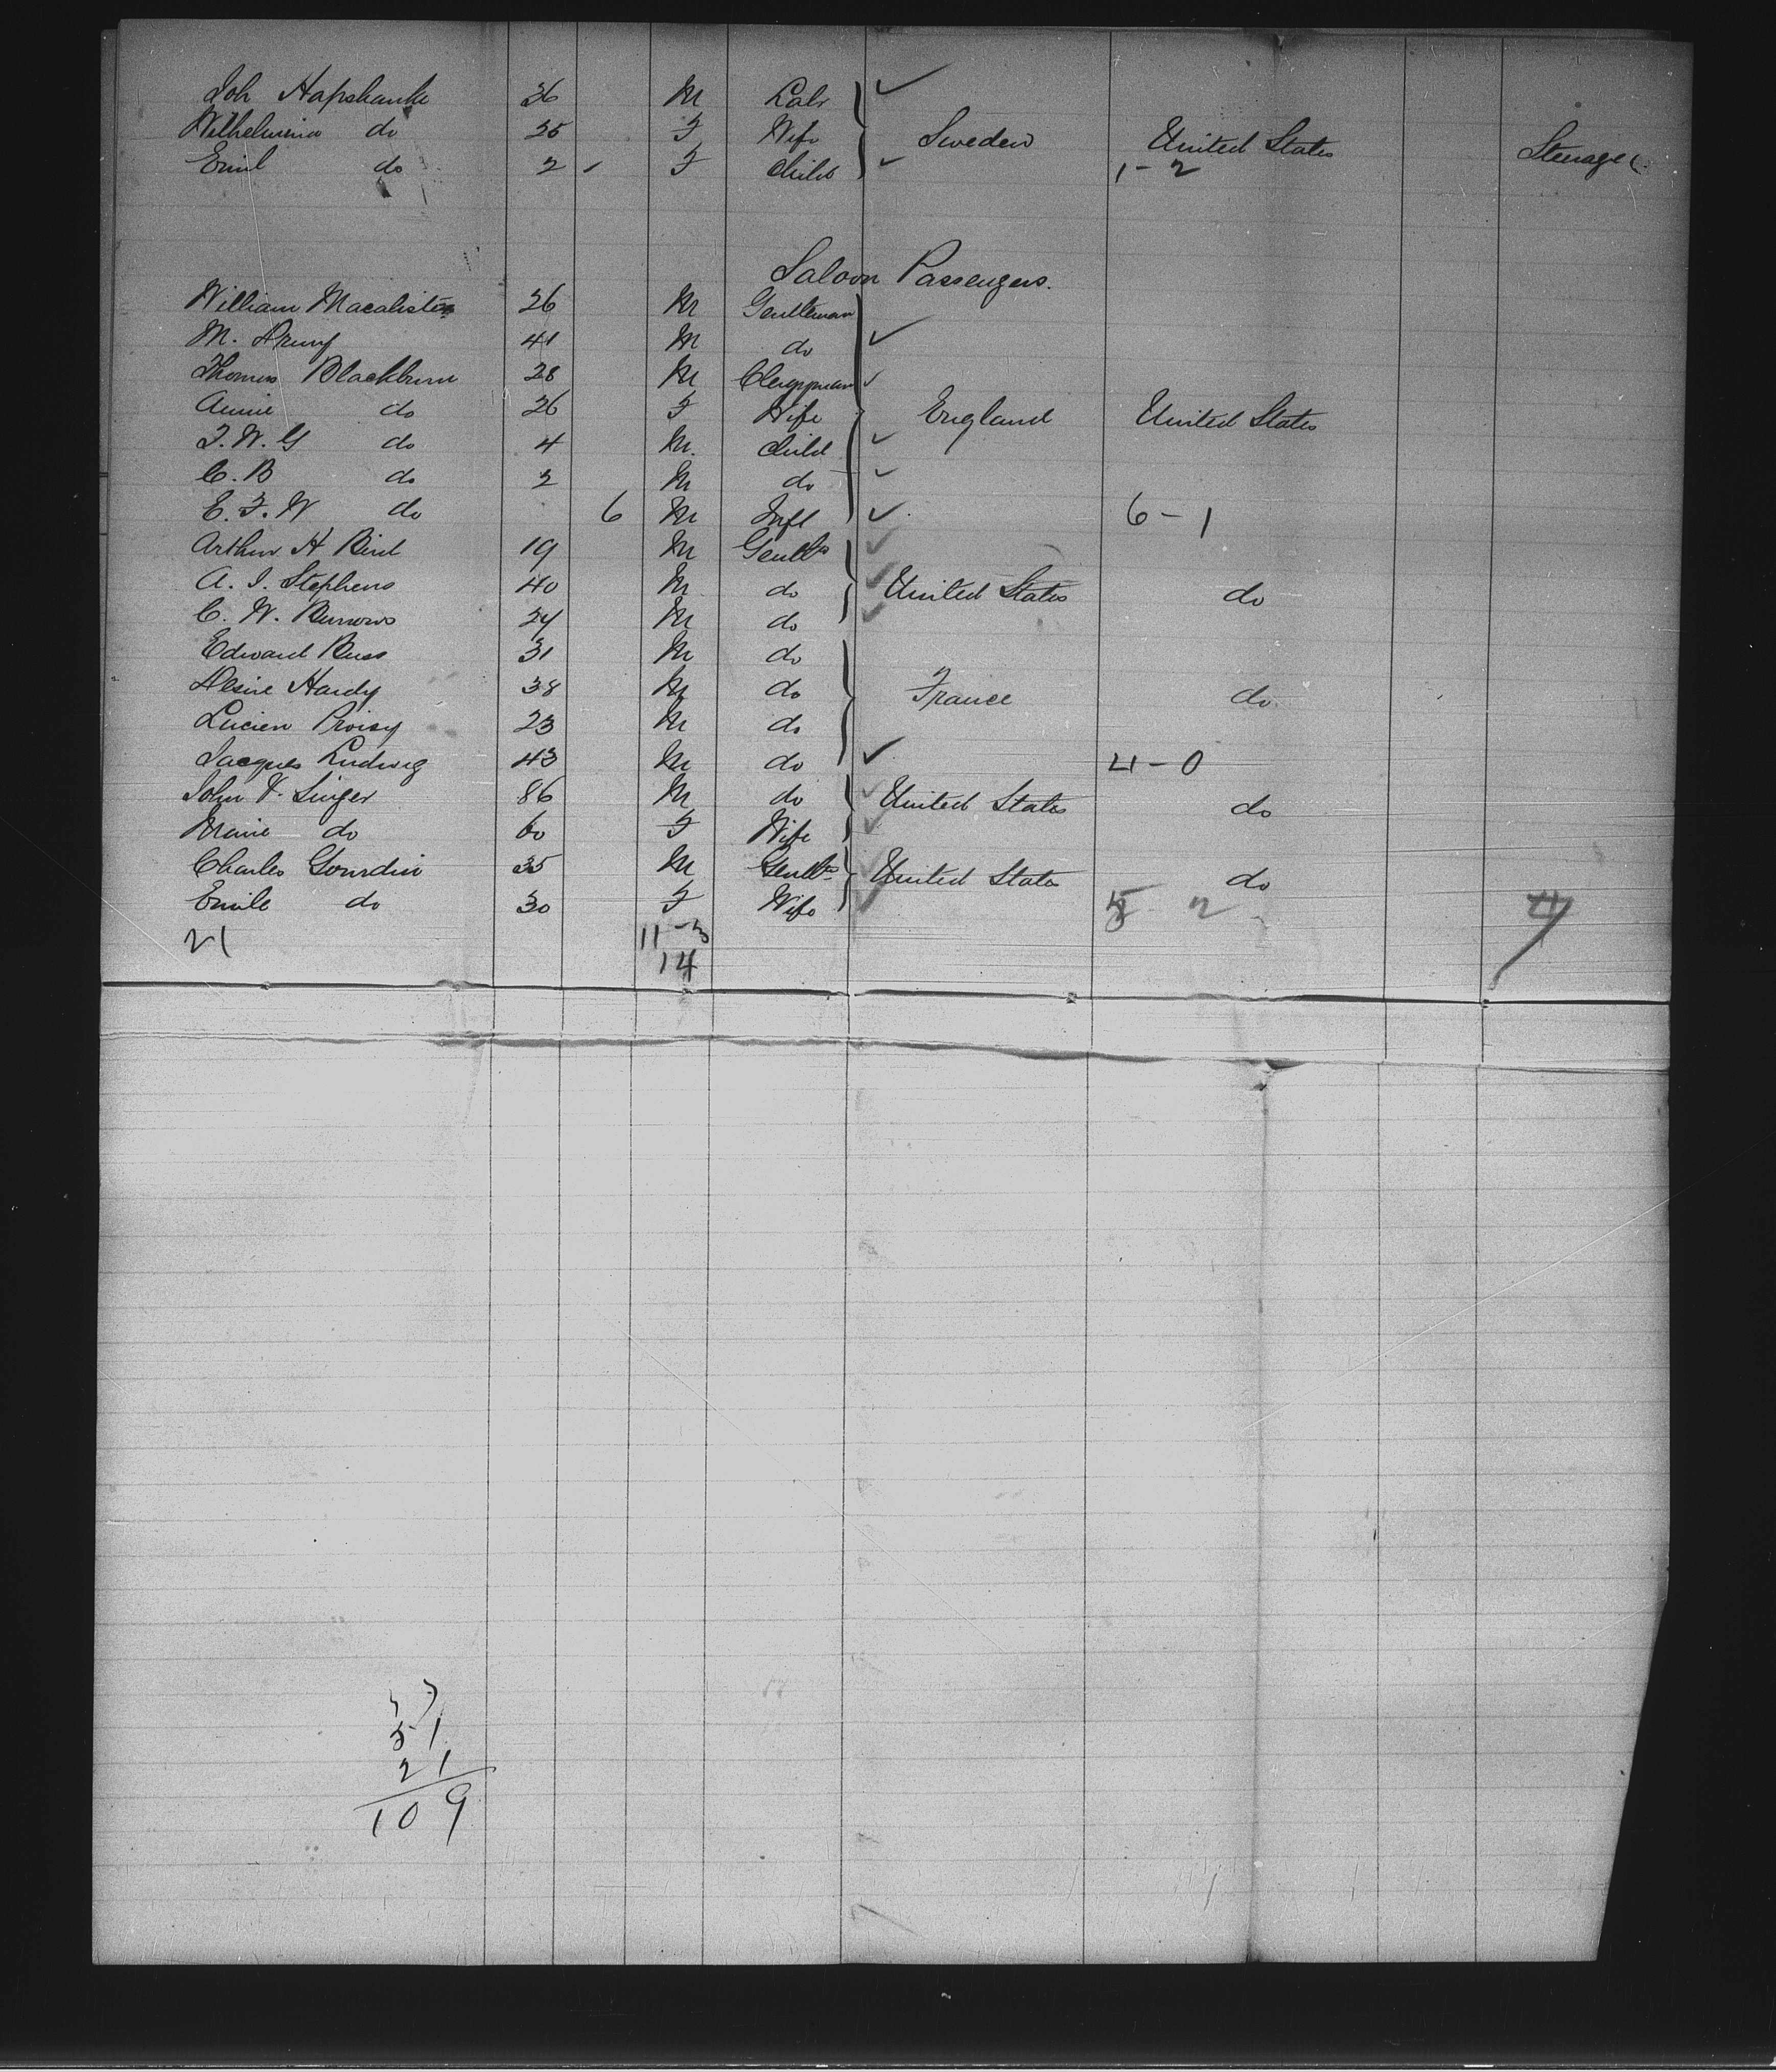 Joh Hapshanke 36 M Labr
Wilhelmina do 25 F Wife Sweden United States Steerage
Emil do 2 F Child 1-2
Saloon Passengers.
William Macalister 26 M Gentleman
M. 41 M do
Thomas Blackburn 28 M Clergyman
Annie do 26 F Wife England United States
F. W. G do 4 M. Child
C. B do 2 M do
E. F. W do 6 M Inft 6-1
Arthur H Bird 19 M Gentln
A. I. Stephens 40 M do United States do
C. W. Burrows 24 M do
Edward Russ 31 M do
Desire Hardy 38 M do France do
Lucien Proisy 23 M do
Jacques Ludwig 43 M do 4-0
John V. Singer 86 M do United States do
Marie do 60 F Wife
Charles Gourdin 35 M Gentln United States do
Emile do 30 F Wife 2
21 11-3
14
37
51
21
109